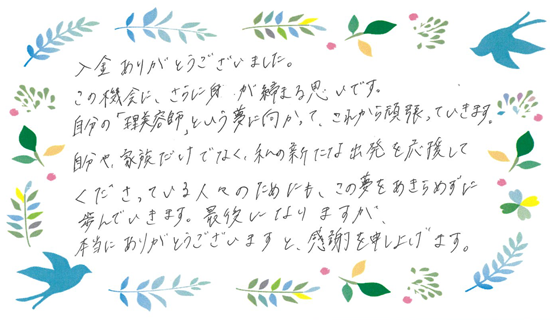 入金ありがとうございました。
この機会に、さらに身が締まる思いです。
自分の「理美容師」という夢に向かって、これから頑張っていきます。
自分や、家族だけでなく、私の新たな出発を応援して
くださっている人々のためにも、この夢をあきらめずに
歩んでいきます。最後になりますが、
本当にありがとうございますと、感謝を申し上げます。